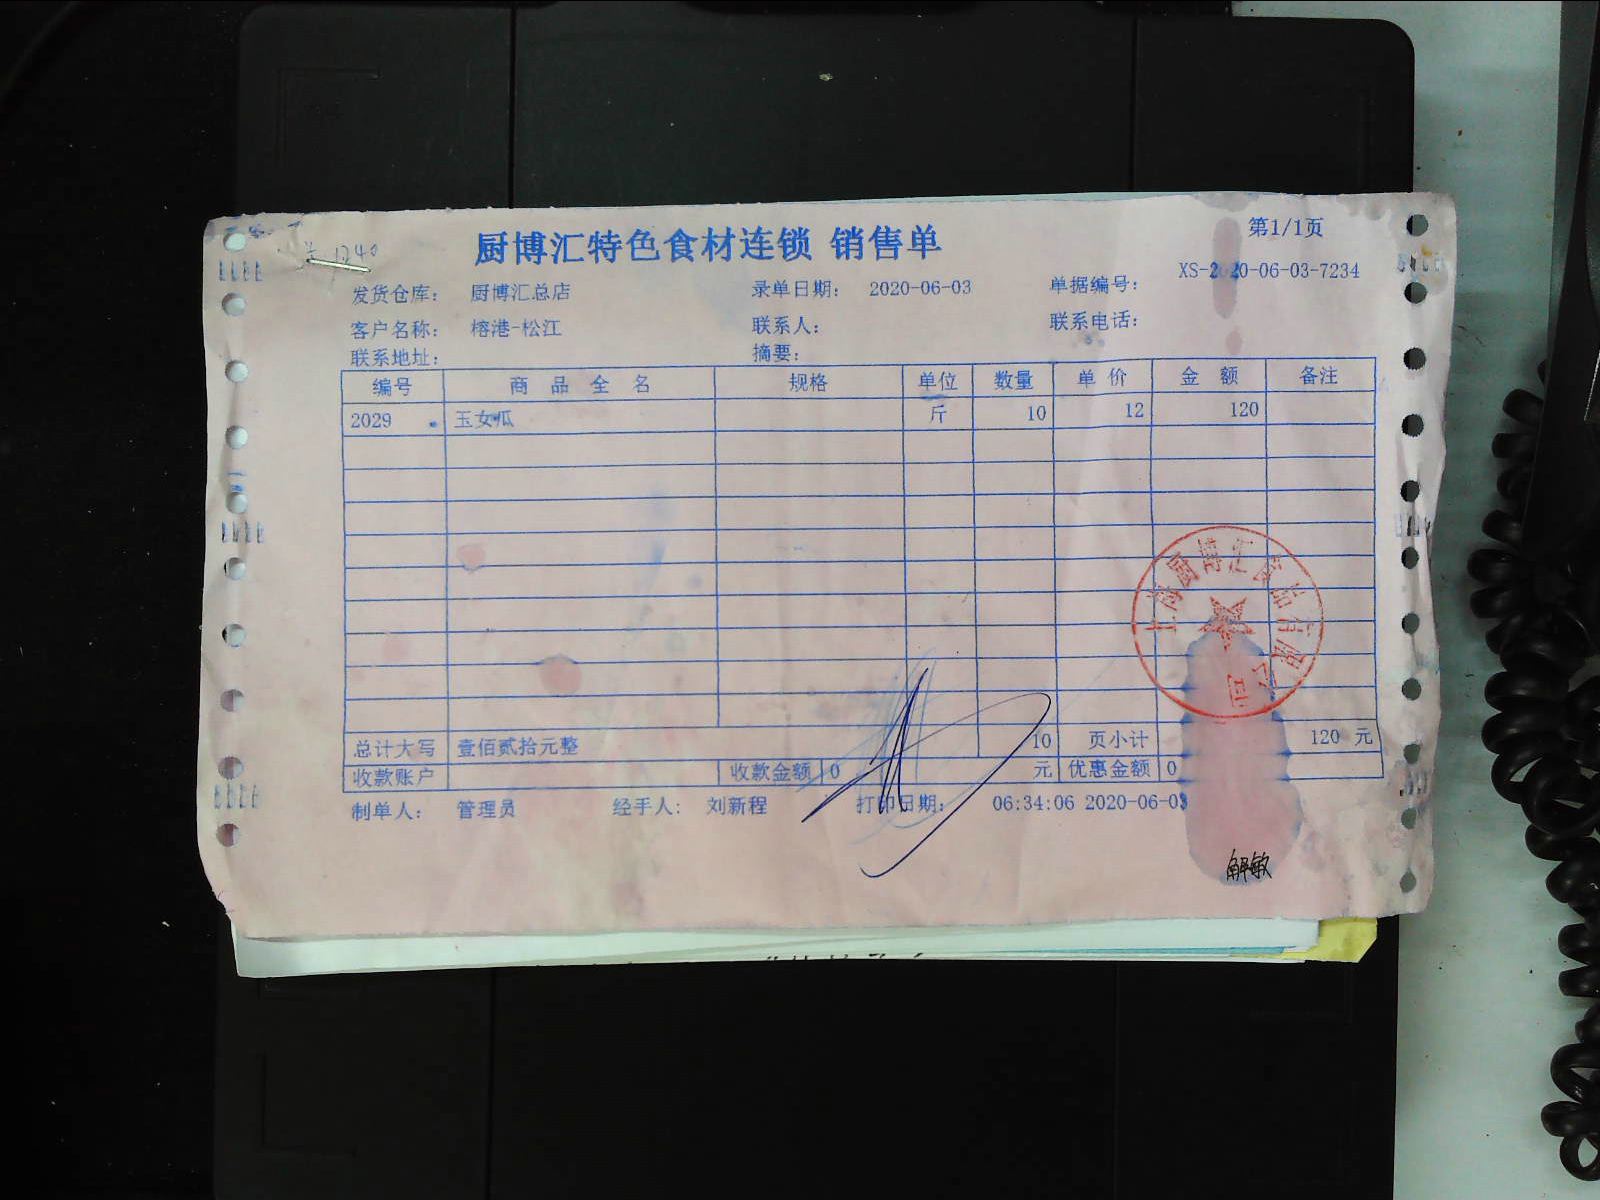 厨博汇特色食材连锁 销售单
第1/1页
1240
发货仓库： 厨博汇总店 录单日期： 2020-06-03 单据编号： XS-2020-06-03-7234
客户名称： 榕港-松江 联系人： 联系电话：
联系地址： 摘要：
编号 商品全名 规格 单位 数量 单价 金额 备注
2029 玉女瓜 斤 10 12 120
上海厨博汇食品有限公司
总计大写 壹佰贰拾元整 10 页小计 120 元
收款账户 收款金额 0 元 优惠金额 0
制单人： 管理员 经手人： 刘新程 打印日期： 06:34:06 2020-06-03
解敏